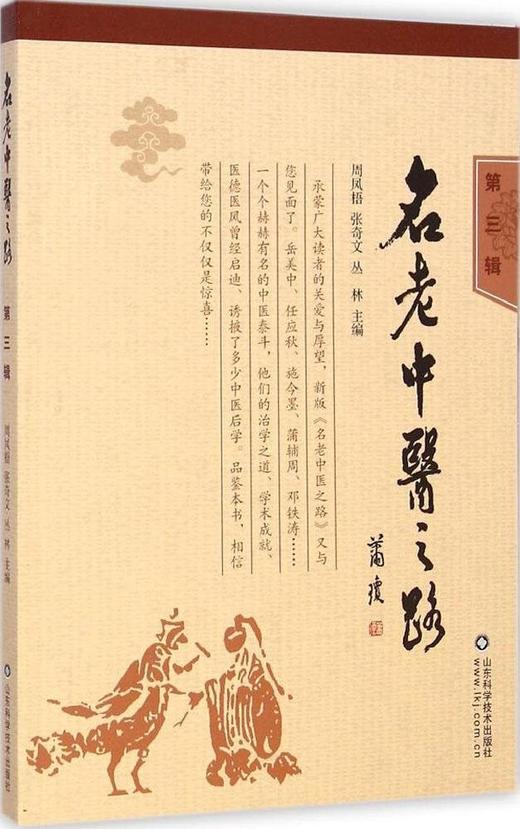 第三辑
名老中醫之路
萧琼
周凤梧 张奇文 丛 林 主编
承蒙广大读者的关爱与厚望，新版《名老中医之路》又与
您见面了。岳美中、任应秋、施今墨、蒲辅周、邓铁涛……
一个个赫赫有名的中医泰斗，他们的治学之道、学术成就、
医德医风曾经启迪、诱掖了多少中医后学。品鉴本书，相信
带给您的不仅仅是惊喜……
山东科学技术出版社
www.lkj.com.cn
名老中醫之路
第三辑
周凤梧 张奇文 丛 林 主编
山东科学技术出版社